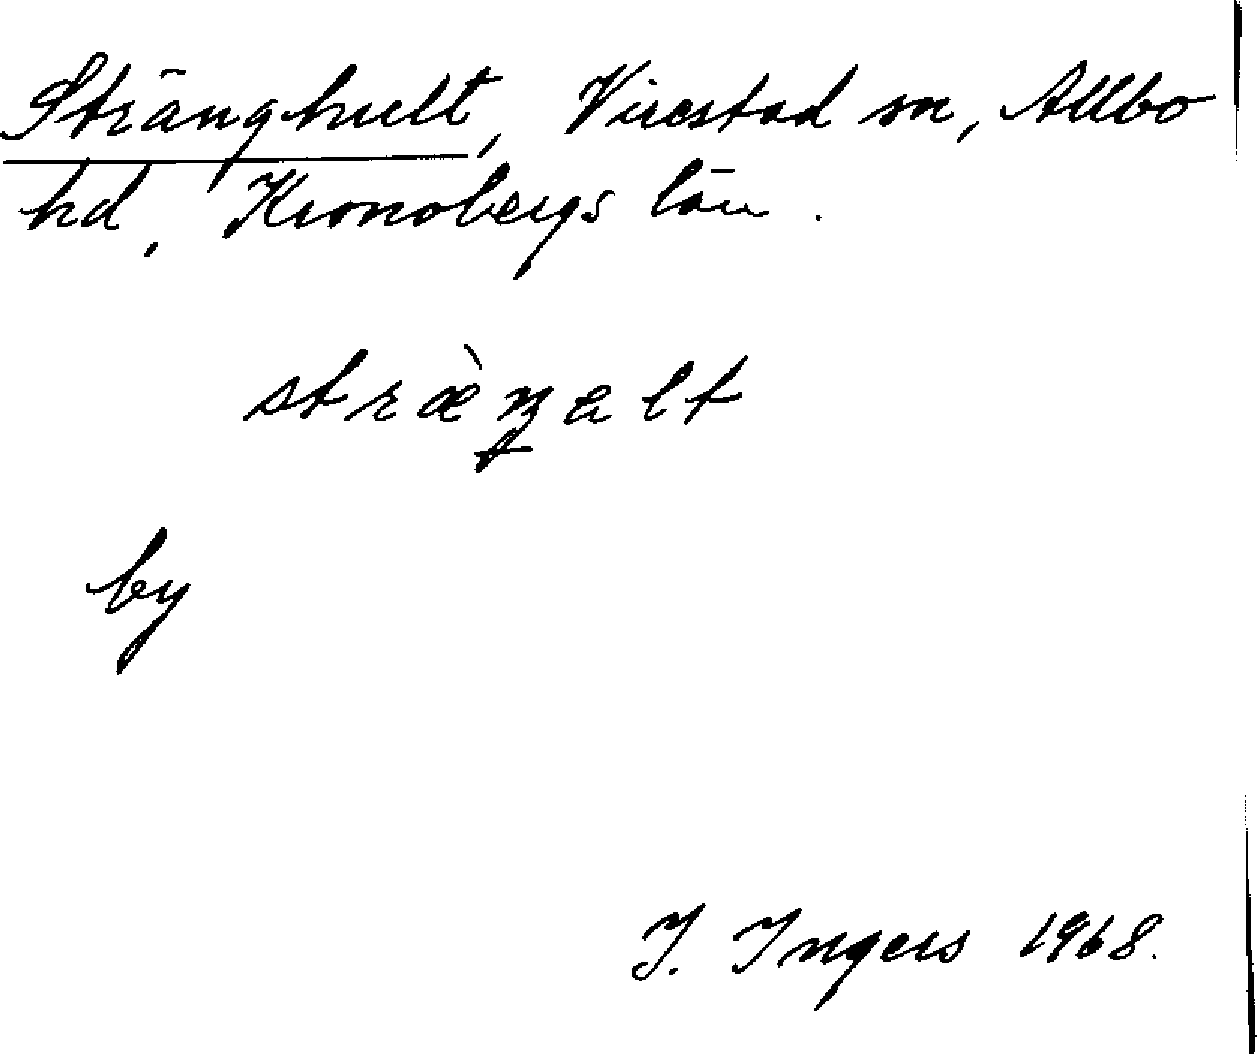 Stränghult, Virestad sn, Allbo
hd, Kronobergs län.
stræ̀ŋalt
by
I. Ingers 1968.